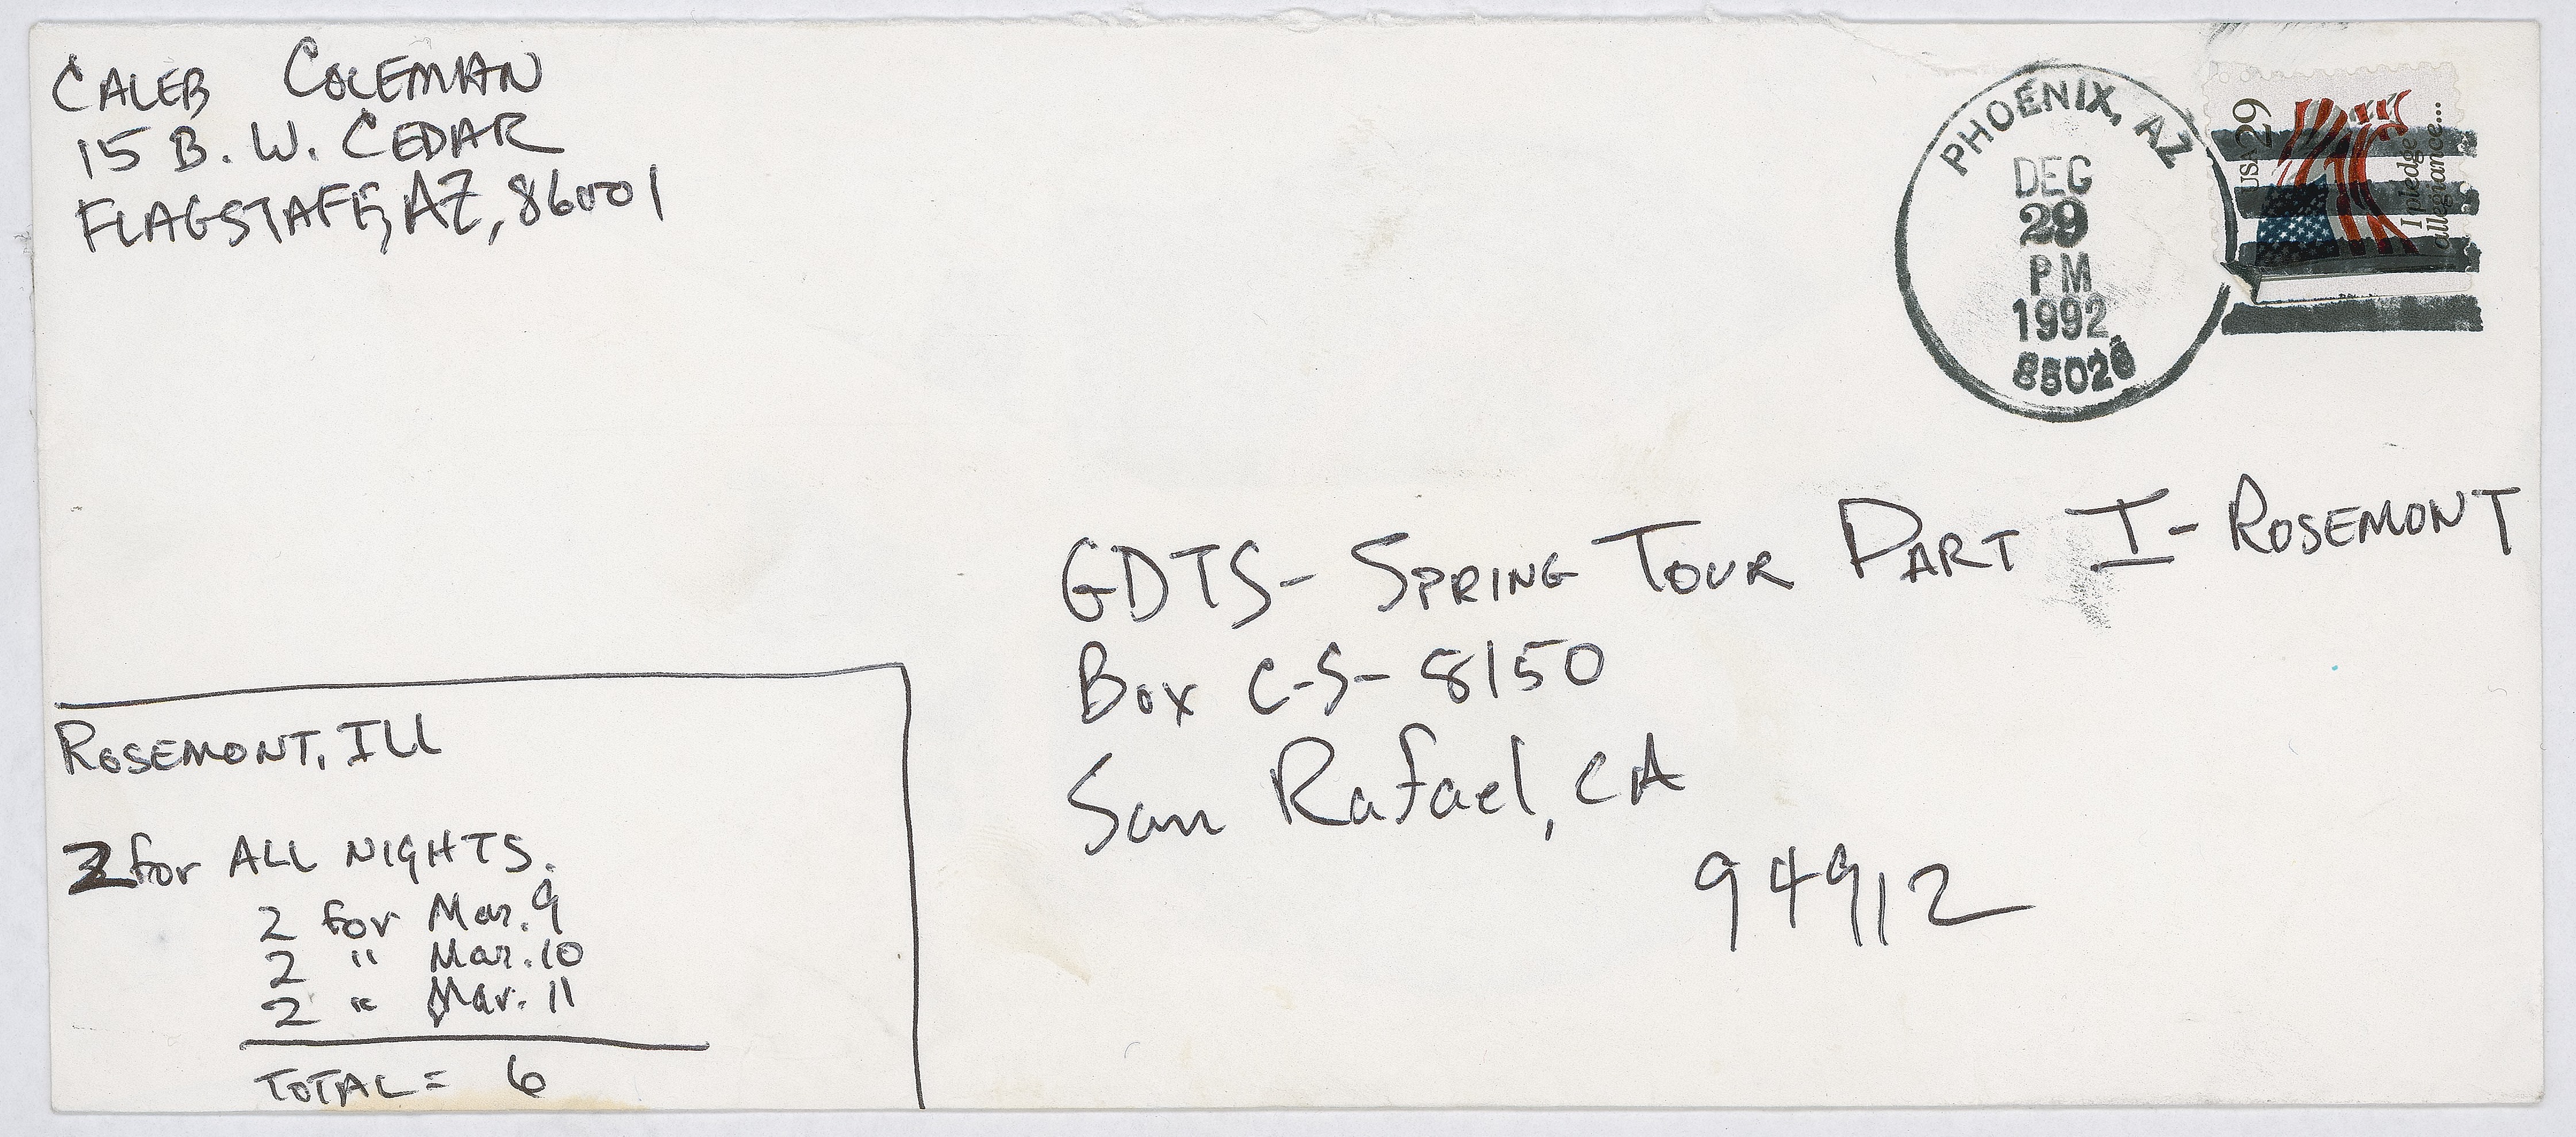 CALEB COLEMAN
15 B. W. CEDAR
FLAGSTAFF, AZ, 86001
PHOENIX, AZ
DEC
29
PM
1992
85026
USA 29
I pledge
allegiance...
GDTS- SPRING TOUR PART I- ROSEMONT
Box C-S- 8150
San Rafael, CA
94912
ROSEMONT, ILL
2 for ALL NIGHTS.
2 for Mar. 9
2 " Mar. 10
2 " Mar. 11
TOTAL = 6